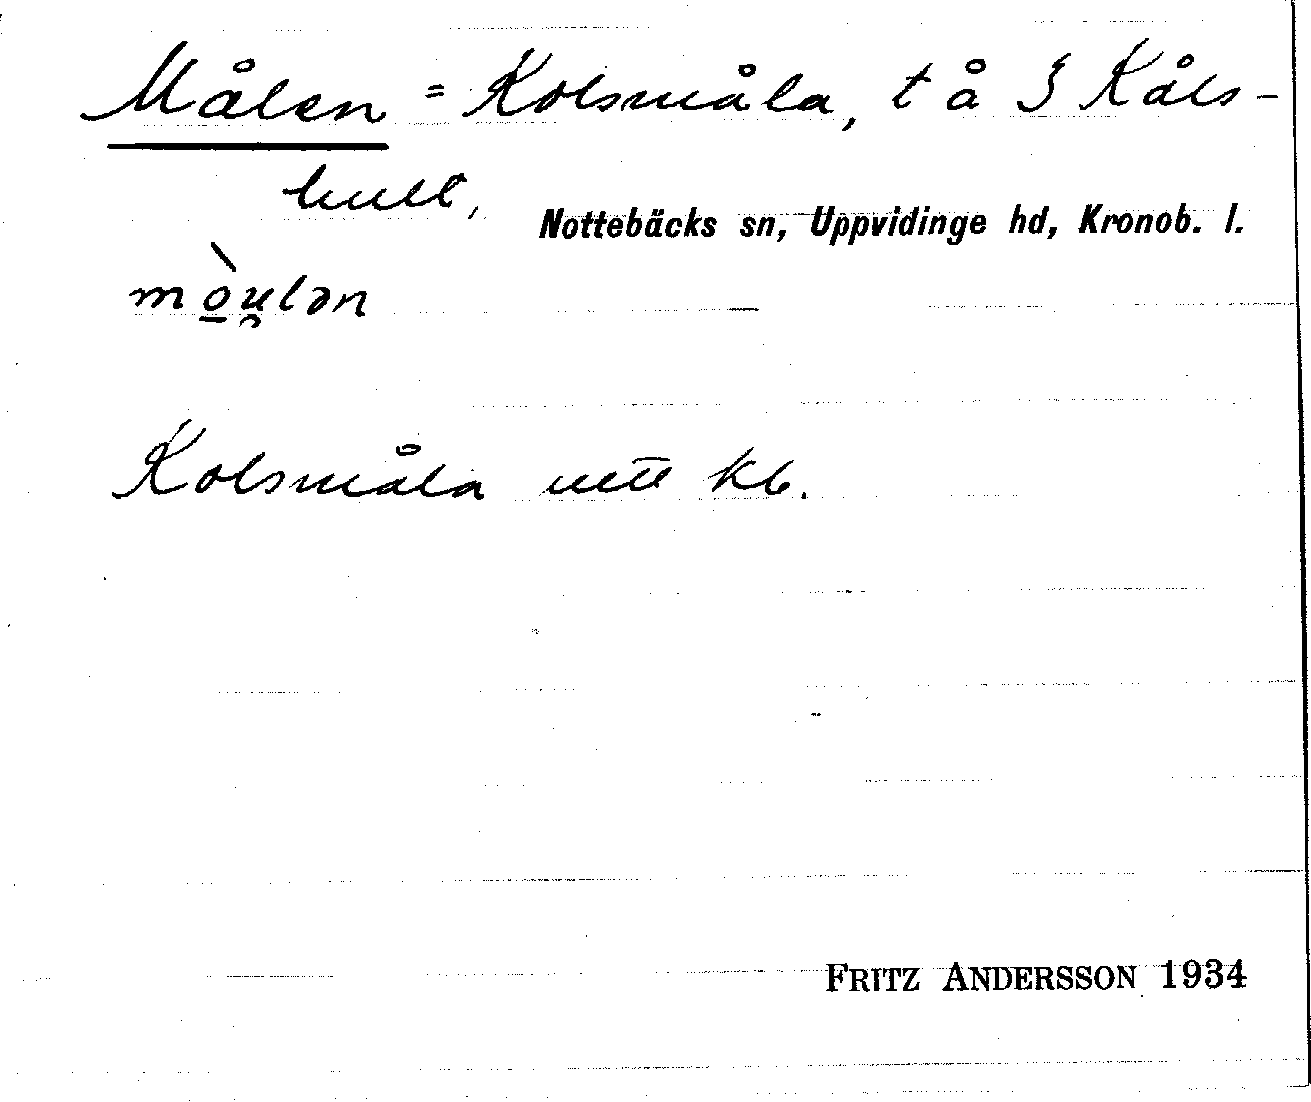 Målen = Kolsmåla, t å § Kåls-
hult,
Nottebäcks sn, Uppvidinge hd, Kronob. l.
mo̲u̯lən
Kolsmåla utt kb.
FRITZ ANDERSSON 1934